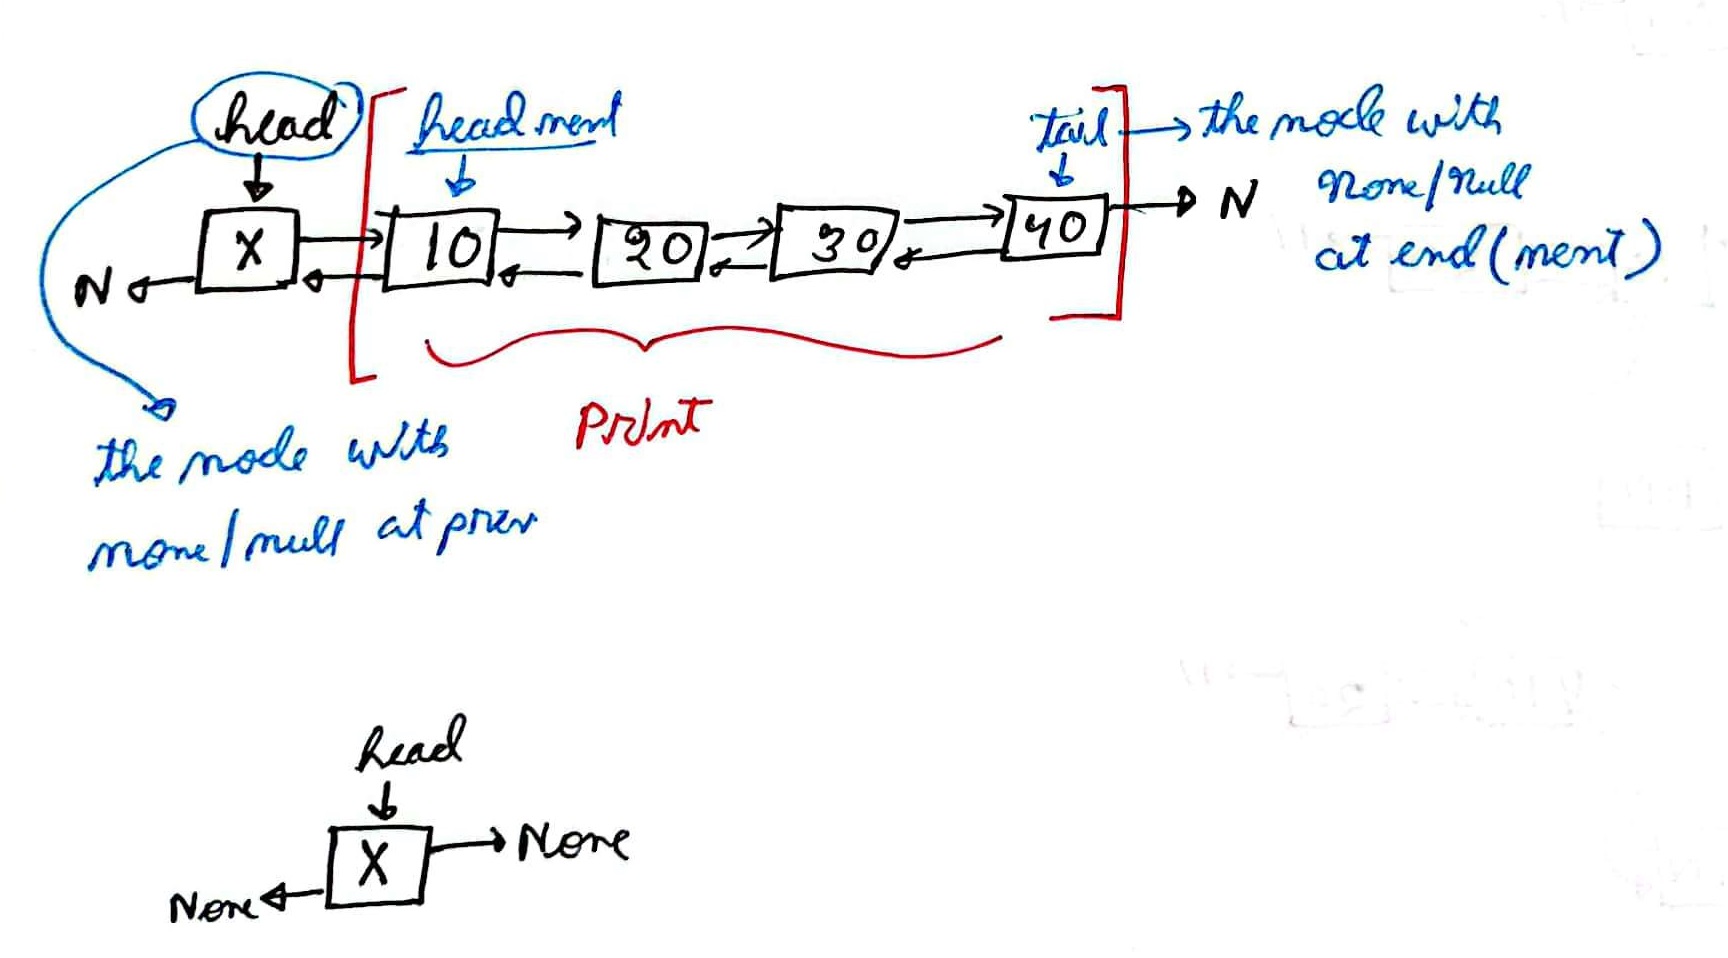 head
head next
tail → the node with
None/Null
at end (next)
N X 10 20 30 40 N
Print
the node with
none/null at prev
head
X None
None